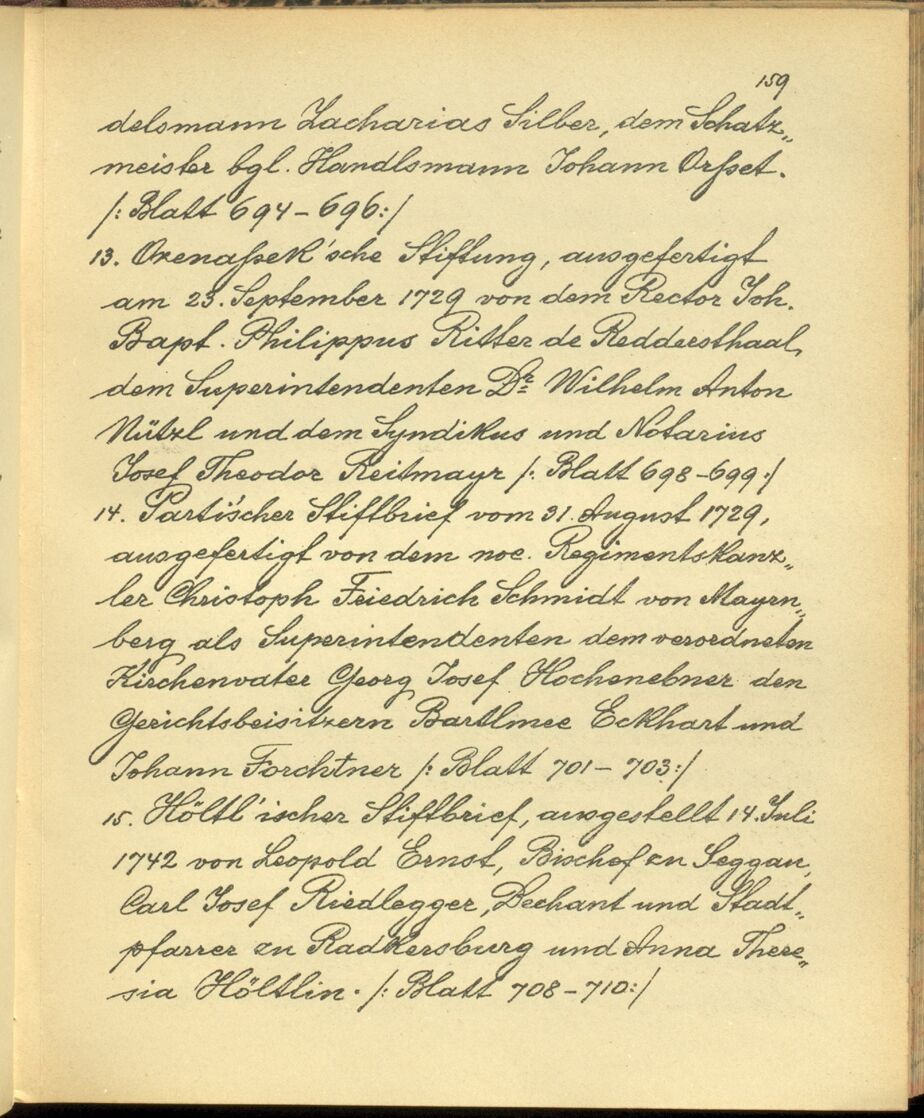 159
delsmann Zacharias Silber, dem Schatz„
meister bgl. Handlsmann Johann Orsset.
/: Blatt 694 – 696:/
13. Oxenaßek'sche Stiftung, ausgefertigt
am 23. September 1729 von dem Rector Joh.
Bapt. Philippus Ritter de Reddersthaal,
dem Superintendenten Dr. Wilhelm Anton
Nützl und dem Syndikus und Notarius
Josef Theodor Reitmayr /: Blatt 698 – 699:/
14. Parti'scher Stiftbrief vom 31. August 1729,
ausgefertigt von dem noe. Regimentskanz„
ler Christoph Friedrich Schmidt von Mayrn„
berg als Superintendenten dem verordneten
Kirchenvater Georg Josef Hochenebner den
Gerichtsbeisitzern Bartlmee Eckhart und
Johann Forchtner /: Blatt 701 – 703:/
15. Höltl'ischer Stiftbrief, ausgestellt 14. Juli
1742 von Leopold Ernst, Bischof zu Seggau,
Carl Josef Riedlegger, Dechant und Stadt„
pfarrer zu Radkersburg und Anna There„
sia Höltlin. /: Blatt 708 – 710:/